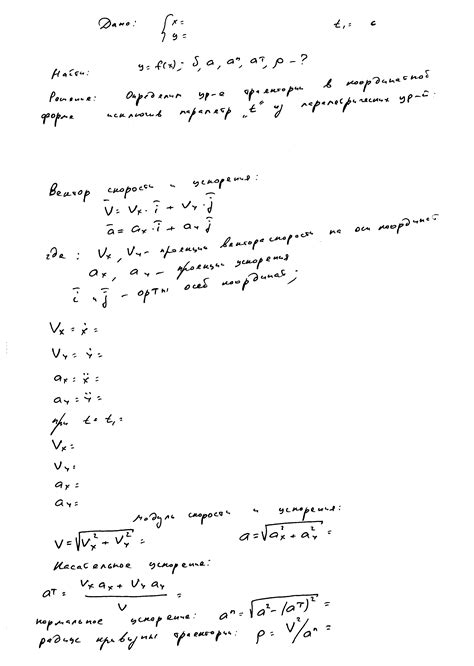 Дано: { x=
y= t₁= с
Найти: y=f(x); υ, a, aⁿ, aᵀ, ρ - ?
Решение: Определим ур-е траектории в координатной
форме исключив параметр „t" из параметрических ур-й.
Вектор скорости и ускорения:
V̅ = Vₓ · i̅ + Vᵧ · j̅
a̅ = aₓ · i̅ + aᵧ j̅
где: Vₓ, Vᵧ - проекции вектора скорость на оси координат
aₓ, aᵧ - проекции ускорения
i̅ и j̅ - орты осей координат;
Vₓ = ẋ =
Vᵧ = ẏ =
aₓ = ẍ =
aᵧ = ÿ =
при t = t₁ =
Vₓ =
Vᵧ =
aₓ =
aᵧ =
модуль скорости и ускорения:
V = √(Vₓ² + Vᵧ²) = a = √(aₓ² + aᵧ²) =
Касательное ускорение:
aᵀ = (Vₓ aₓ + Vᵧ aᵧ) / V =
нормальное ускорение: aⁿ = √(a² - (aᵀ)²) =
радиус кривизны траектории: ρ = V²/aⁿ =